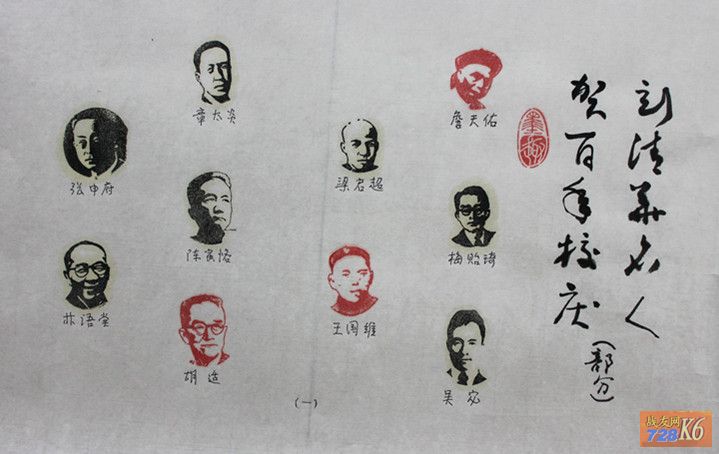 刻清华名人
贺百年校庆
（部分）
詹天佑
梅贻琦
吴宓
梁启超
王国维
章太炎
陈寅恪
胡适
张申府
林语堂
（一）
战友网
728K6